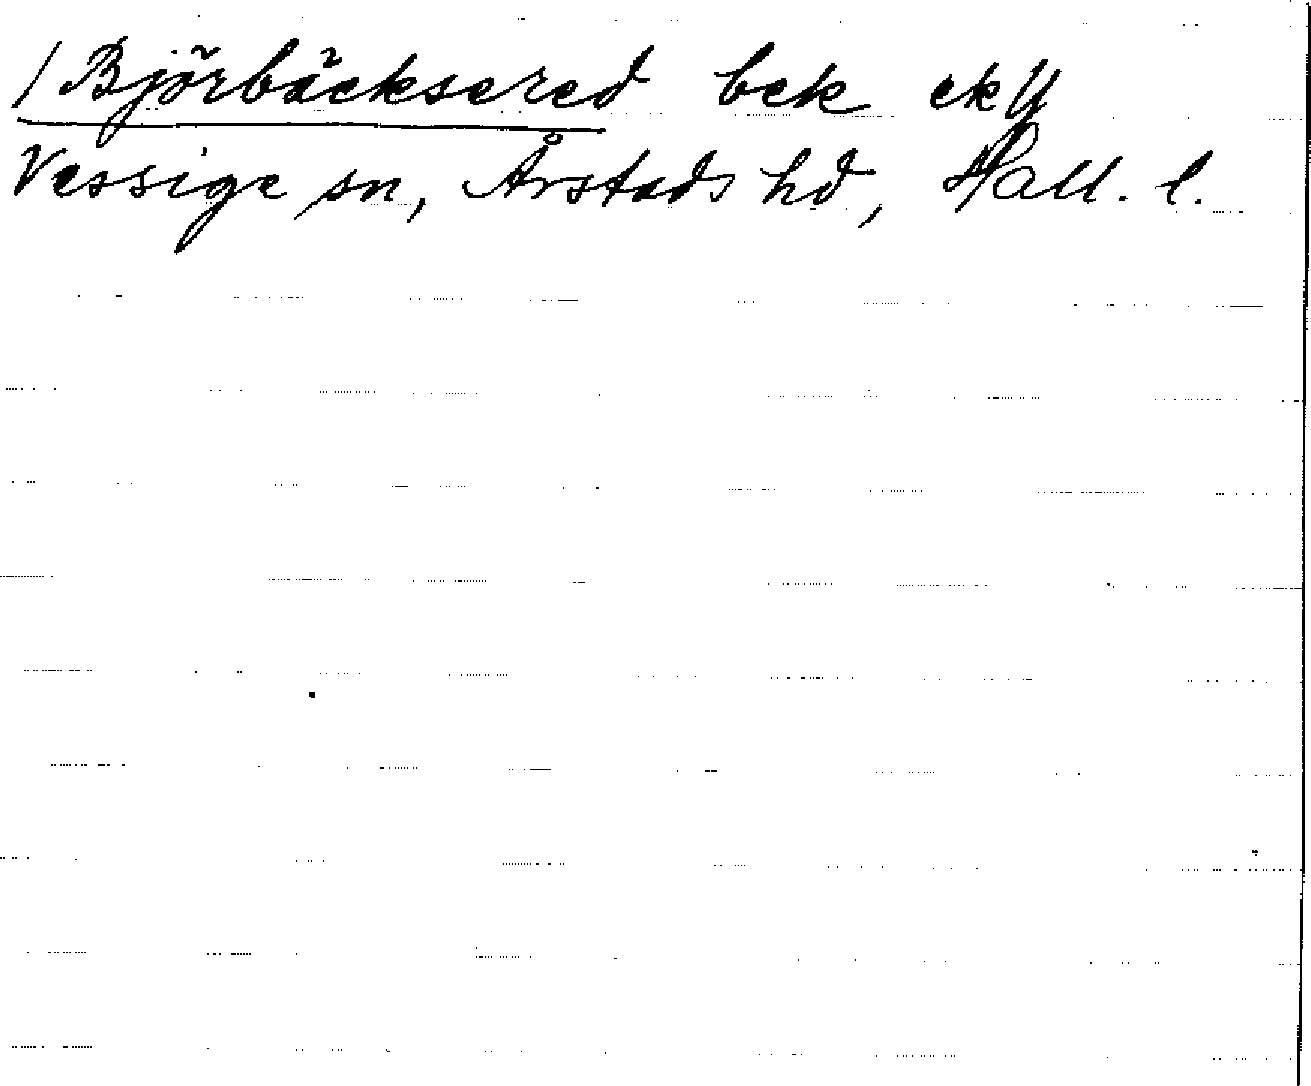 / Björbäcksered bek ekbl
Vessige sn, Årstads hd, Hall. l.